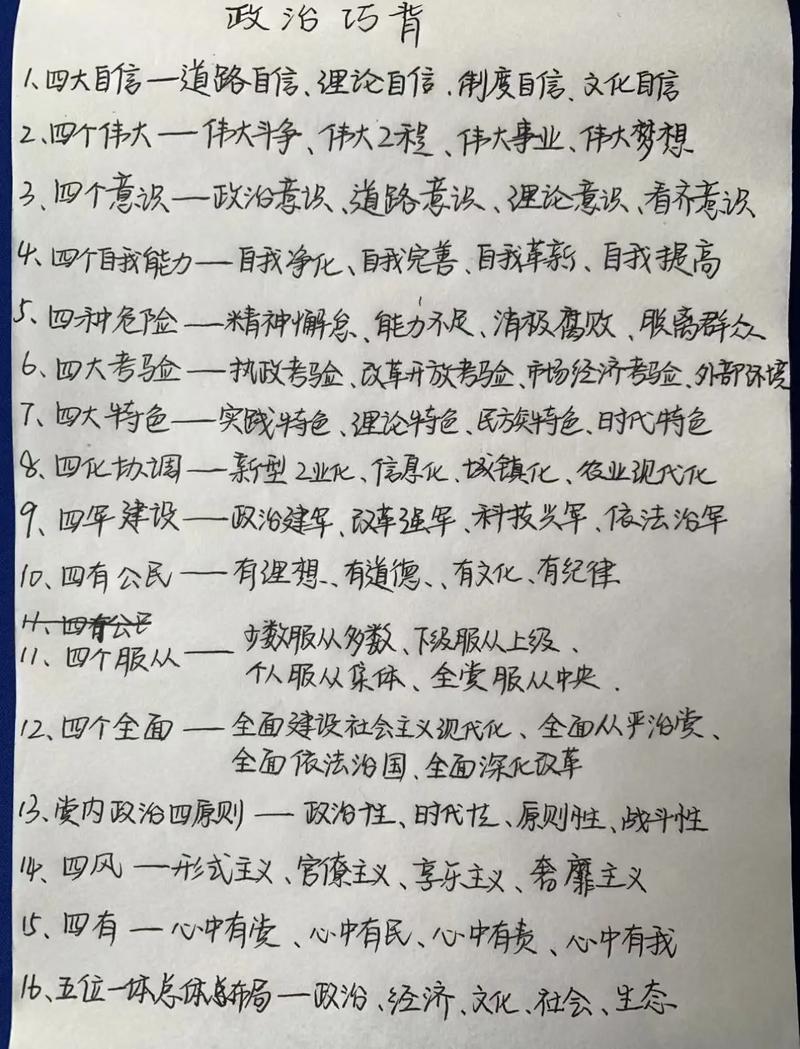 政治巧背
1、四大自信—道路自信、理论自信、制度自信、文化自信
2、四个伟大—伟大斗争、伟大工程、伟大事业、伟大梦想
3、四个意识—政治意识、道路意识、理论意识、看齐意识
4、四个自我能力—自我净化、自我完善、自我革新、自我提高
5、四种危险—精神懈怠、能力不足、消极腐败、脱离群众
6、四大考验—执政考验、改革开放考验、市场经济考验、外部环境
7、四大特色—实践特色、理论特色、民族特色、时代特色
8、四化协调—新型工业化、信息化、城镇化、农业现代化
9、四军建设—政治建军、改革强军、科技兴军、依法治军
10、四有公民—有理想、有道德、、有文化、有纪律
11、四有公民
11、四个服从—少数服从多数、下级服从上级、
个人服从集体、全党服从中央.
12、四个全面—全面建设社会主义现代化、全面从严治党、
全面依法治国、全面深化改革
13、党内政治四原则—政治性、时代性、原则性、战斗性
14、四风—形式主义、官僚主义、享乐主义、奢靡主义
15、四有—心中有党、心中有民、心中有责、心中有我
16、五位一体总体布局—政治、经济、文化、社会、生态